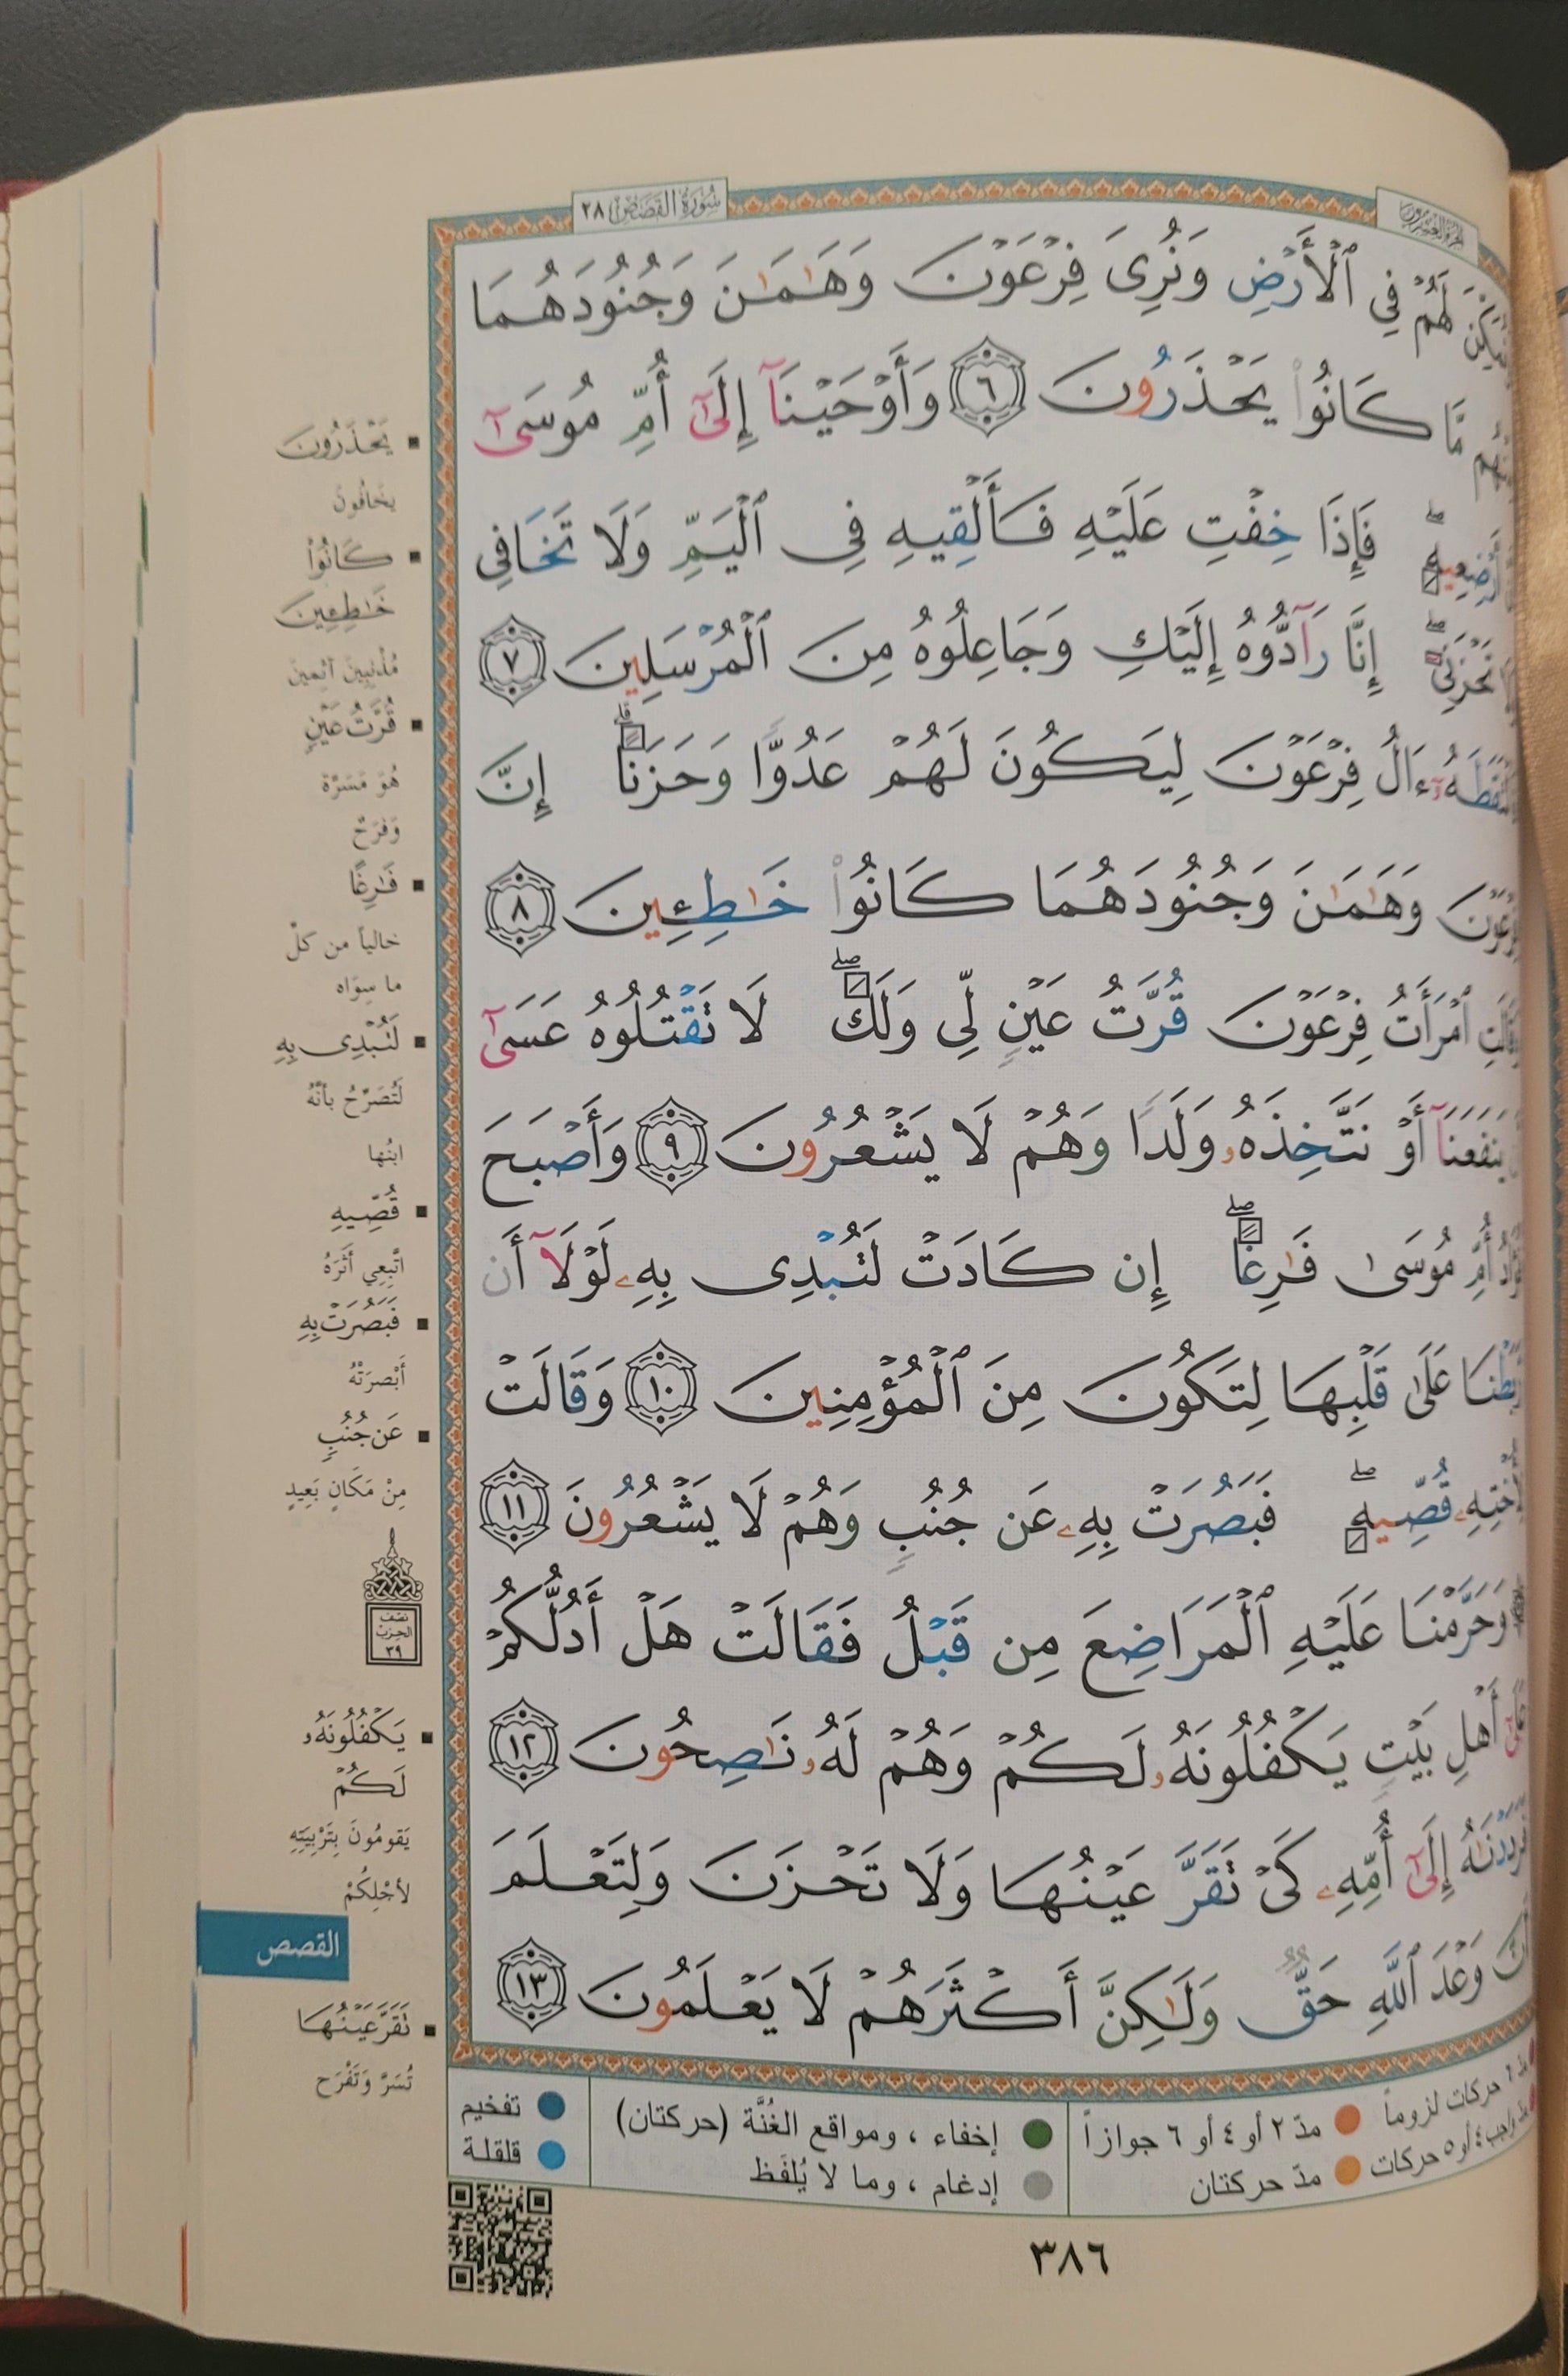 سُورَةُ القَصَصِ ٢٨
الجزء العشرون
وَنُمَكِّنَ لَهُمْ فِى ٱلْأَرْضِ وَنُرِىَ فِرْعَوْنَ وَهَـٰمَـٰنَ وَجُنُودَهُمَا
مِنْهُم مَّا كَانُوا۟ يَحْذَرُونَ ٦ وَأَوْحَيْنَآ إِلَىٰٓ أُمِّ مُوسَىٰٓ
أَرْضِعِيهِ ۖ فَإِذَا خِفْتِ عَلَيْهِ فَأَلْقِيهِ فِى ٱلْيَمِّ وَلَا تَخَافِى
تَحْزَنِىٓ ۖ إِنَّا رَآدُّوهُ إِلَيْكِ وَجَاعِلُوهُ مِنَ ٱلْمُرْسَلِينَ ٧
فَٱلْتَقَطَهُۥٓ ءَالُ فِرْعَوْنَ لِيَكُونَ لَهُمْ عَدُوًّا وَحَزَنًا ۗ إِنَّ
فِرْعَوْنَ وَهَـٰمَـٰنَ وَجُنُودَهُمَا كَانُوا۟ خَـٰطِـِٔينَ ٨
وَقَالَتِ ٱمْرَأَتُ فِرْعَوْنَ قُرَّتُ عَيْنٍ لِّى وَلَكَ ۖ لَا تَقْتُلُوهُ عَسَىٰٓ
يَنفَعَنَآ أَوْ نَتَّخِذَهُۥ وَلَدًا وَهُمْ لَا يَشْعُرُونَ ٩ وَأَصْبَحَ
فُؤَادُ أُمِّ مُوسَىٰ فَـٰرِغًا ۖ إِن كَادَتْ لَتُبْدِى بِهِۦ لَوْلَآ أَن
رَّبَطْنَا عَلَىٰ قَلْبِهَا لِتَكُونَ مِنَ ٱلْمُؤْمِنِينَ ١٠ وَقَالَتْ
لِأُخْتِهِۦ قُصِّيهِ ۖ فَبَصُرَتْ بِهِۦ عَن جُنُبٍ وَهُمْ لَا يَشْعُرُونَ ١١
وَحَرَّمْنَا عَلَيْهِ ٱلْمَرَاضِعَ مِن قَبْلُ فَقَالَتْ هَلْ أَدُلُّكُمْ
عَلَىٰٓ أَهْلِ بَيْتٍ يَكْفُلُونَهُۥ لَكُمْ وَهُمْ لَهُۥ نَـٰصِحُونَ ١٢
فَرَدَدْنَـٰهُ إِلَىٰٓ أُمِّهِۦ كَىْ تَقَرَّ عَيْنُهَا وَلَا تَحْزَنَ وَلِتَعْلَمَ
أَنَّ وَعْدَ ٱللَّهِ حَقٌّ وَلَـٰكِنَّ أَكْثَرَهُمْ لَا يَعْلَمُونَ ١٣
يَحْذَرُونَ
يخافونَ
كَانُوا۟
خَـٰطِـِٔينَ
مُذْنِبِينَ آثِمِينَ
قُرَّتُ عَيْنٍ
هُوَ مَسَرَّة
وَفَرَحٌ
فَـٰرِغًا
خالياً من كلّ
ما سِوَاه
لَتُبْدِى بِهِ
لَتُصَرِّحُ بأنَّهُ
ابْنُها
قُصِّيهِ
اتَّبِعِي أَثَرَهُ
فَبَصُرَتْ بِهِ
أَبْصَرَتْهُ
عَن جُنُبٍ
مِنْ مَكَانٍ بَعِيدٍ
نصف
الحزب
٣٩
يَكْفُلُونَهُۥ
لَكُمْ
يَقومُونَ بِتَرْبِيَتِهِ
لأجْلِكُمْ
القصص
تَقَرَّ عَيْنُهَا
تُسَرَّ وَتَفْرَح
مدّ ٦ حركات لزوماً ● مدّ ٢ أو ٤ أو ٦ جوازاً
مدّ واجب ٤ أو ٥ حركات ● مدّ حركتان
إخفاء ، ومواقع الغُنَّة (حركتان)
إدغام ، وما لا يُلفَظ
تفخيم
قلقلة
٣٨٦